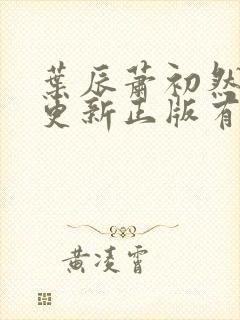 葉辰蕭初然
更新正版有
黄凌霄